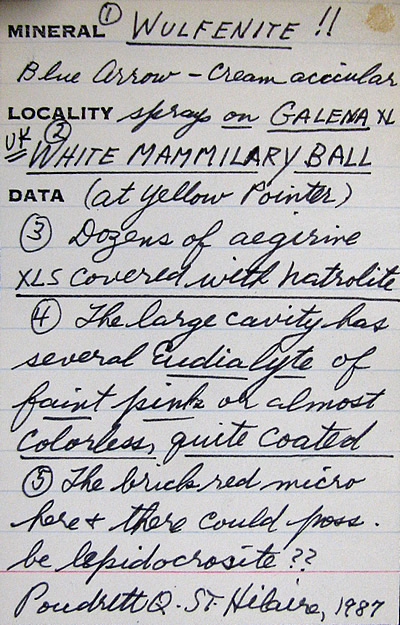 MINERAL ① WULFENITE !!
Blue Arrow - Cream acicular
LOCALITY sprays on GALENA XL
UK ② WHITE MAMMILARY BALL
DATA (at Yellow Pointer)
③ Dozens of aegirine
XLS covered with natrolite
④ The large cavity has
several Eudialyte of
faint pink or almost
colorless, quite coated
⑤ The brick red micro
here & there could poss.
be lepidocrosite ??
Poudrett Q. ST. Hilaire, 1987